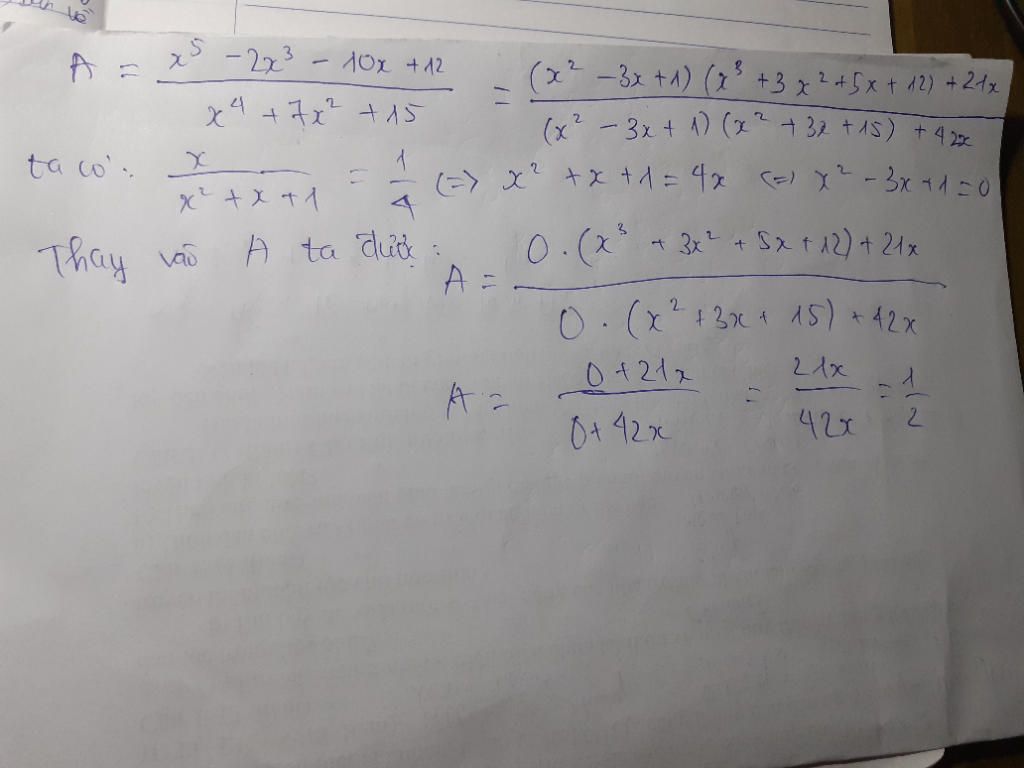 A = \frac{x^5 - 2x^3 - 10x + 12}{x^4 + 7x^2 + 15} = \frac{(x^2 - 3x + 1)(x^3 + 3x^2 + 5x + 12) + 21x}{(x^2 - 3x + 1)(x^2 + 3x + 15) + 42x}
ta có: \frac{x}{x^2 + x + 1} = \frac{1}{4} <=> x^2 + x + 1 = 4x <=> x^2 - 3x + 1 = 0
Thay vào A ta được: A = \frac{0 . (x^3 + 3x^2 + 5x + 12) + 21x}{0 . (x^2 + 3x + 15) + 42x}
A = \frac{0 + 21x}{0 + 42x} = \frac{21x}{42x} = \frac{1}{2}